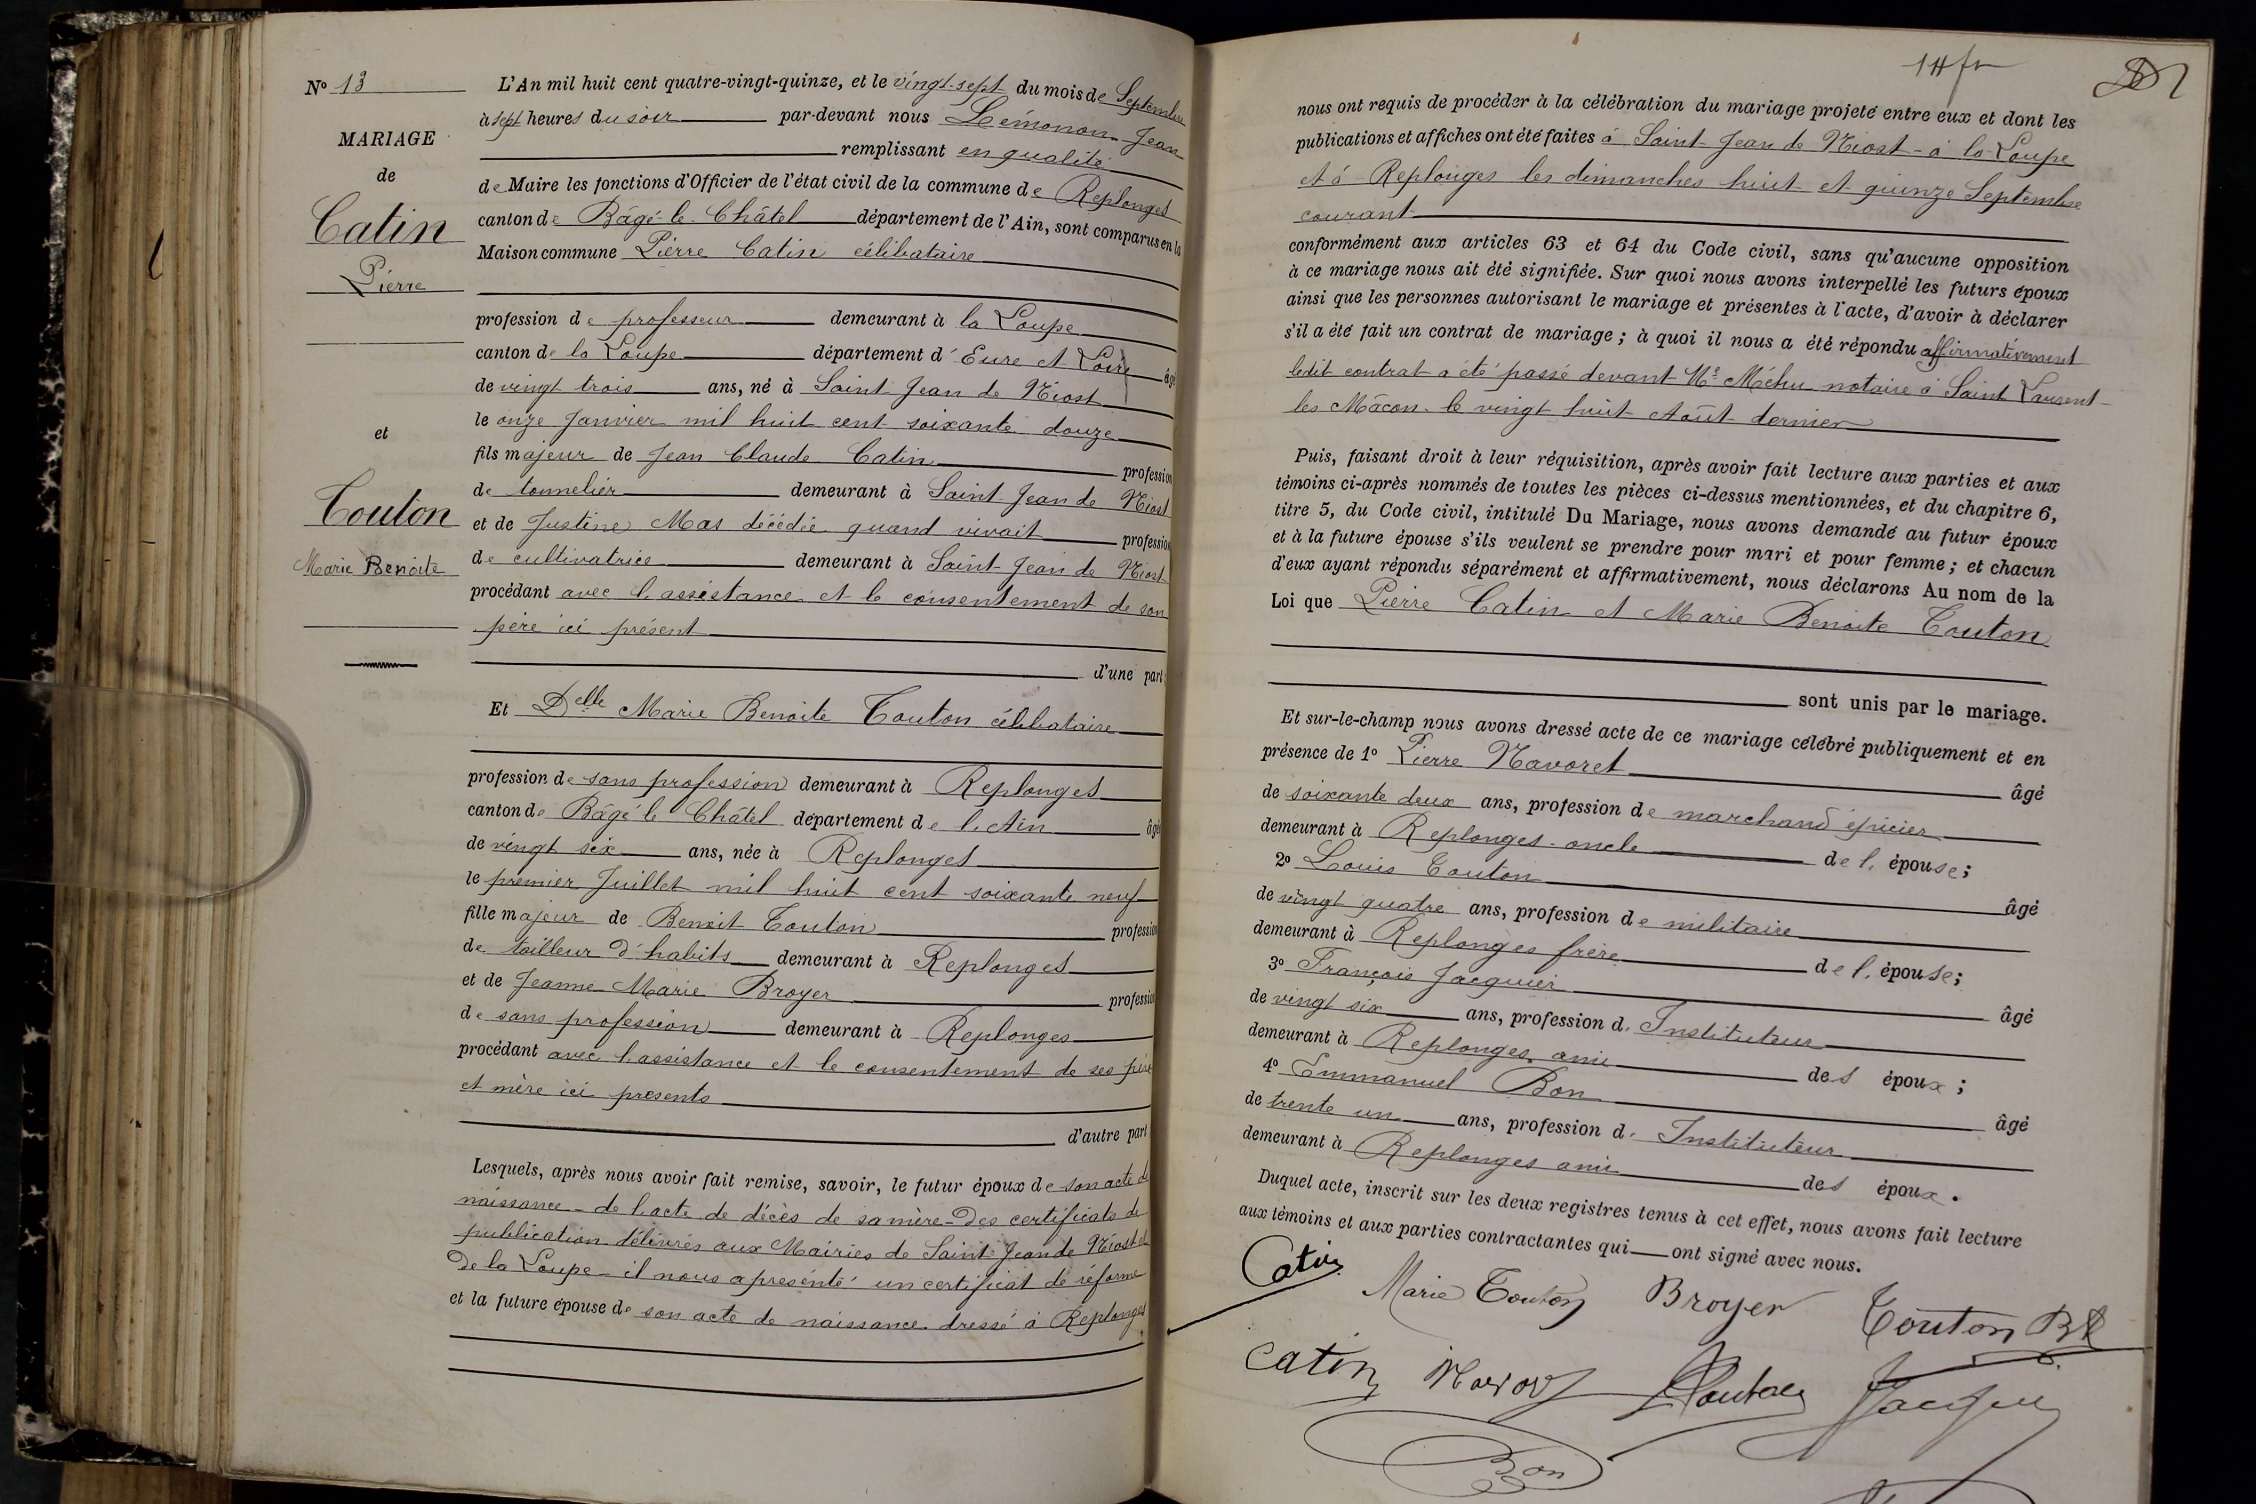 N° 13
MARIAGE
de
Catin
Pierre
et
Touton
Marie Benoite
L'An mil huit cent quatre-vingt-quinze, et le vingt-sept du mois de Septembre
à sept heures du soir par-devant nous Lémonon Jean
remplissant en qualité
de Maire les fonctions d'Officier de l'état civil de la commune de Replonges
canton de Bâgé-le-Châtel département de l'Ain, sont comparus en la
Maison commune Pierre Catin célibataire
profession de professeur demeurant à la Loupe
canton de la Loupe département d'Eure et Loir âgé
de vingt trois ans, né à Saint Jean de Niost
le onze Janvier mil huit cent soixante douze
fils majeur de Jean Claude Catin profession
de tonnelier demeurant à Saint Jean de Niost
et de Justine Mas décédée quand vivait profession
de cultivatrice demeurant à Saint Jean de Niost
procédant avec l'assistance et le consentement de son
père ici présent
d'une part
Et Delle Marie Benoite Touton célibataire
profession de sans profession demeurant à Replonges
canton de Bâgé le Châtel département de l'Ain âgé
de vingt six ans, née à Replonges
le premier Juillet mil huit cent soixante neuf
fille majeur de Benoit Touton profession
de tailleur d'habits demeurant à Replonges
et de Jeanne Marie Broyer profession
de sans profession demeurant à Replonges
procédant avec l'assistance et le consentement de ses père
et mère ici presents
d'autre part
Lesquels, après nous avoir fait remise, savoir, le futur époux de son acte de
naissance - de l'acte de décès de sa mère - Des certificats de
publication délivrés aux Mairies de Saint Jean de Niost et
De la Loupe - il nous a présenté un certificat de réforme
et la future épouse de son acte de naissance dressé à Replonges
nous ont requis de procéder à la célébration du mariage projeté entre eux et dont les
publications et affiches ont été faites à Saint Jean de Niost - à la Loupe
et à Replonges les dimanches huit et quinze Septembre
courant
conformément aux articles 63 et 64 du Code civil, sans qu'aucune opposition
à ce mariage nous ait été signifiée. Sur quoi nous avons interpellé les futurs époux
ainsi que les personnes autorisant le mariage et présentes à l'acte, d'avoir à déclarer
s'il a été fait un contrat de mariage ; à quoi il nous a été répondu affirmativement
ledit contrat a été passé devant Me Méhu notaire à Saint Laurent
les Mâcon le vingt huit Août dernier
Puis, faisant droit à leur réquisition, après avoir fait lecture aux parties et aux
témoins ci-après nommés de toutes les pièces ci-dessus mentionnées, et du chapitre 6,
titre 5, du Code civil, intitulé Du Mariage, nous avons demandé au futur époux
et à la future épouse s'ils veulent se prendre pour mari et pour femme ; et chacun
d'eux ayant répondu séparément et affirmativement, nous déclarons Au nom de la
Loi que Pierre Catin et Marie Benoite Touton
sont unis par le mariage.
Et sur-le-champ nous avons dressé acte de ce mariage célébré publiquement et en
présence de 1° Pierre Navoret âgé
de soixante deux ans, profession de marchand épicier
demeurant à Replonges - oncle de l'épouse ;
2° Louis Touton âgé
de vingt quatre ans, profession de militaire
demeurant à Replonges frère de l'épouse ;
3° François Jacquier âgé
de vingt six ans, profession d' Instituteur
demeurant à Replonges ami des époux ;
4° Emmanuel Bon âgé
de trente un ans, profession d' Instituteur
demeurant à Replonges ami des époux.
Duquel acte, inscrit sur les deux registres tenus à cet effet, nous avons fait lecture
aux témoins et aux parties contractantes qui ont signé avec nous.
Catin Marie Touton Broyer Touton Bt
Catin Touton
Bon